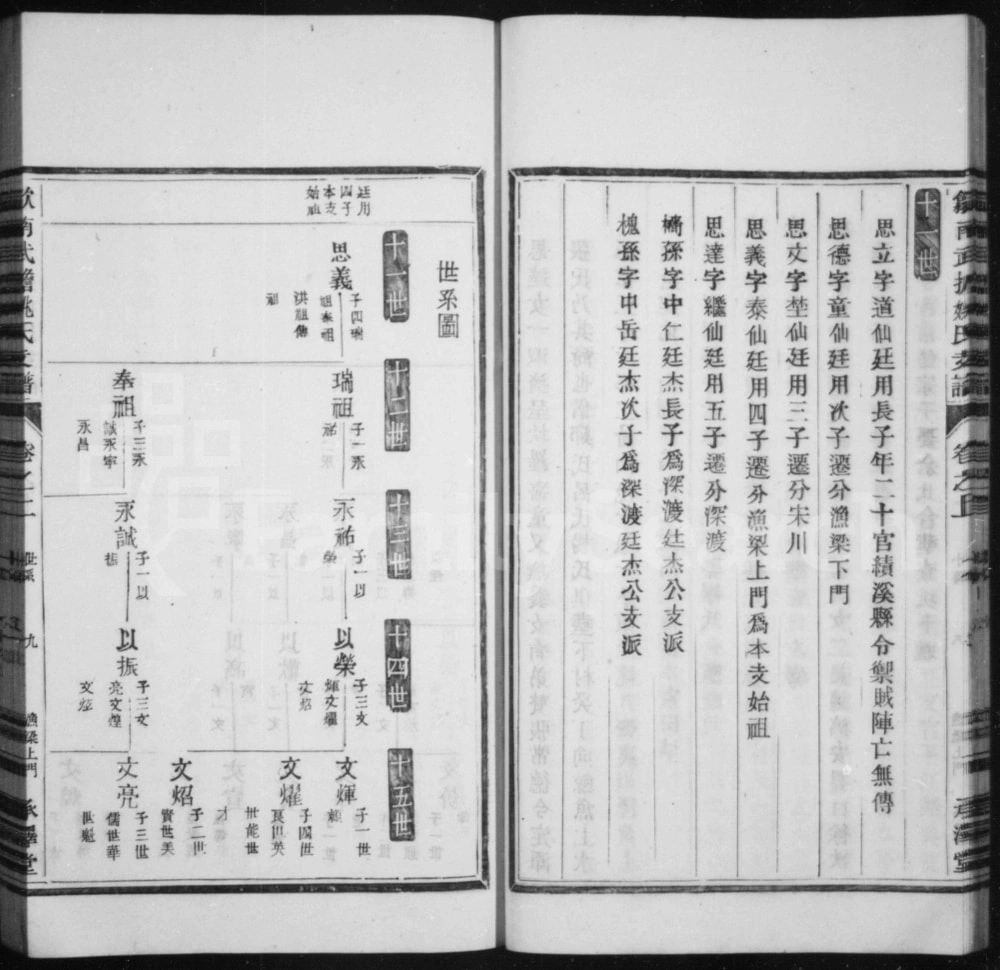 十一世
思立字道仙廷用長子年二十官績溪縣令禦賊陣亡無傳
思德字童仙廷用次子遷分漁梁下門
思文字埜仙廷用三子遷分宋川
思義字泰仙廷用四子遷分漁梁上門為本支始祖
思達字繼仙廷用五子遷分深渡
槁孫字中仁廷杰長子為深渡廷杰公支派
槐孫字中岳廷杰次子為深渡廷杰公支派
承澤堂
世系圖
十一世
十二世
十三世
十四世
十五世
廷用
四子
本支
始祖
思義
子四瑞
祖奉祖
洪祖僑
祖
瑞祖
子一永
祐
永祐
子一以
榮
以榮
子三文
煇文燿
文炤
文煇
子一世
文燿
子四世
良世英
世能世
才
文炤
子二世
賢世美
奉祖
子三永
誠永寧
永昌
永誠
子一以
振
以振
子三文
亮文煌
文亮
子三世
儒世華
世魁
歙南武擔姚氏支譜
卷之二
世系
九
漁梁上門
承澤堂